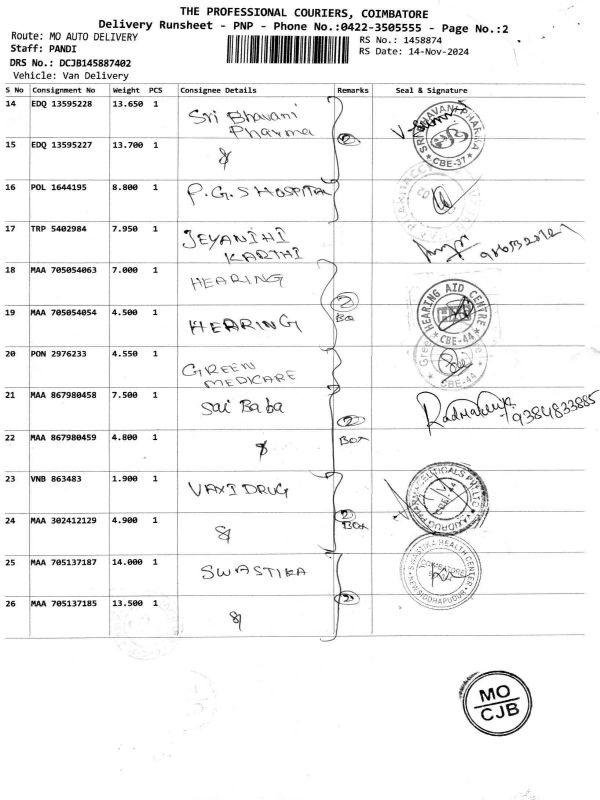 THE PROFESSIONAL COURIERS, COIMBATORE
Delivery Runsheet - PNP - Phone No.:0422-3505555 - Page No.:2
Route: MO AUTO DELIVERY
RS No.: 1458874
Staff: PANDI
RS Date: 14-Nov-2024
DRS No.: DCJB145887402
Vehicle: Van Delivery
S No Consignment No Weight PCS Consignee Details Remarks Seal & Signature
14 EDQ 13595228 13.650 1 Sri Bhavani
Pharma
2
SRI BHAVANI PHARMA
CBE-37
15 EDQ 13595227 13.700 1 &
16 POL 1644195 8.800 1 P.G.S HOSPITAL
17 TRP 5402984 7.950 1 JEYANIHI
KARTHI
18 MAA 705054063 7.000 1 HEARING
2
Box
HEARING AID CENTRE
CBE-44
19 MAA 705054054 4.500 1 HEARING
20 PON 2976233 4.550 1 GREEN
MEDICARE
CBE-44
21 MAA 867980458 7.500 1 Sai Baba
2
Box
9384833885
22 MAA 867980459 4.800 1 &
23 VNB 863483 1.900 1 VAXI DRUG
2
BOX
24 MAA 302412129 4.900 1 &
25 MAA 705137187 14.000 1 SWASTIKA
2
SWASTIKA HEALTH CENTER
COIMBATORE
NEW SIDDHAPUDUR
26 MAA 705137185 13.500 1 &
MO
CJB